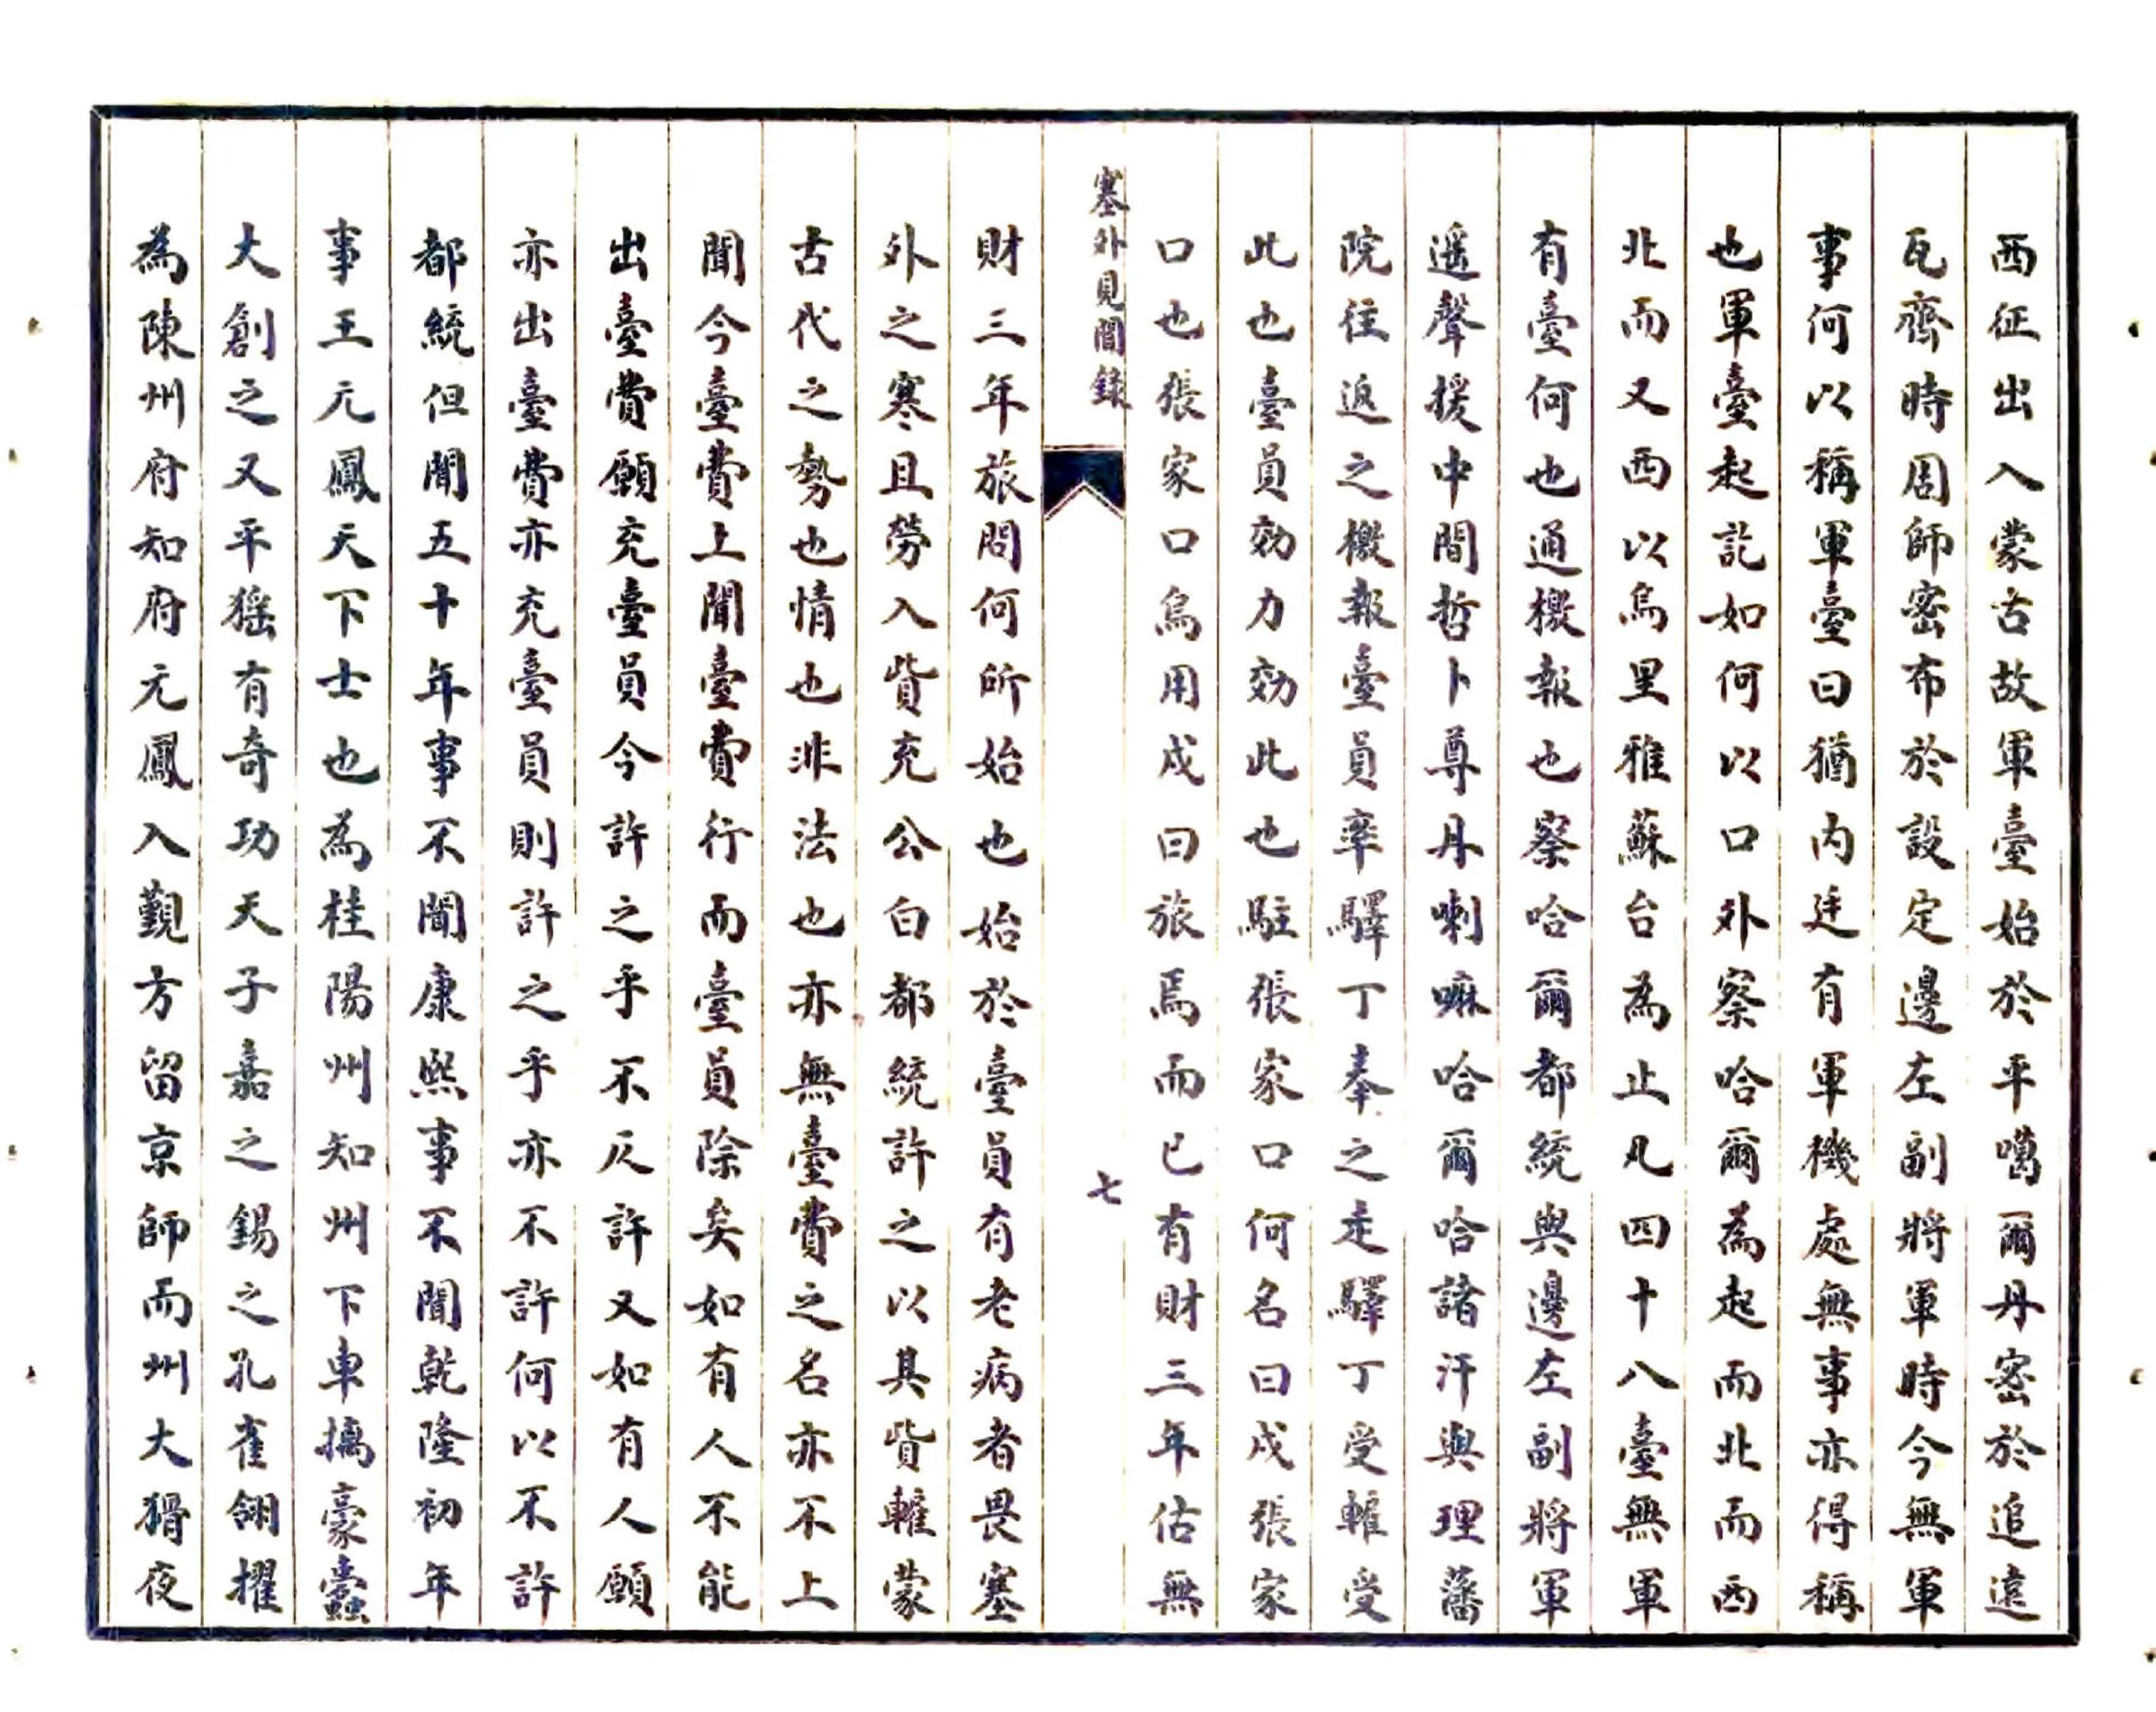 西征出入蒙古故軍臺始於平噶爾丹密於追逺
瓦齊時周師密布於設定邊左副將軍時今無軍
事何以稱軍臺曰猶内廷有軍機處無事亦得稱
也軍臺起訖如何以口外察哈爾為起而北而西
北而又西以烏里雅蘇台為止凡四十八臺無軍
有臺何也通檄報也察哈爾都統與邊左副將軍
遥聲援中間哲卜尊丹喇嘛哈爾哈諸汗與理藩
院往返之檄報臺員率驛丁奉之走驛丁受𨍏受
此也臺員効力効此也駐張家口何名曰戍張家
口也張家口烏用戍曰旅焉而已有財三年估無
塞外見聞録
七
財三年旅問何所始也始於臺員有老病者畏塞
外之寒且勞入貲充公白都統許之以其貲𨍏蒙
古代之勢也情也非法也亦無臺費之名亦不上
聞今臺費上聞臺費行而臺員除矣如有人不能
出臺費願充臺員今許之乎不仄許又如有人願
亦出臺費亦充臺員則許之乎亦不許何以不許
都統但聞五十年事不聞康熙事不聞乾隆初年
事王元鳳天下士也為桂陽州知州下車擒豪蠹
大創之又平猺有奇功天子嘉之錫之孔雀翎擢
為陳州府知府元鳳入覲方留京師而州大猾夜